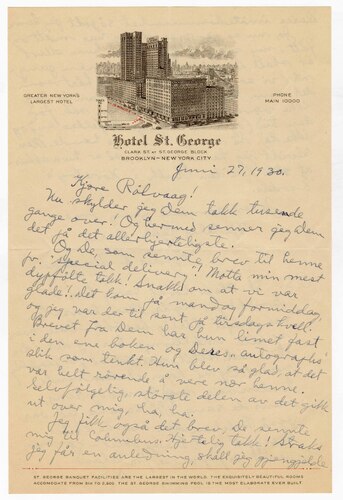 GREATER NEW YORK'S
LARGEST HOTEL
PHONE
MAIN 10000
Hotel St. George
CLARK ST. AT ST. GEORGE BLOCK
BROOKLYN - NEW YORK CITY
Juni 27, 1930.
Kjære Rølvaag!
Nu skylder jeg Dem takk tusende
gange over! Og hermed sender jeg Dem
det på det allerhjerteligste.
Og De, som sendte brev til henne
pr. "Special delivery"! Motta min mest
dypfølte takk! Snakk om at vi var
glade! Det kom på mandag formiddag
og jeg var der til sent på tirsdags kvell.
Brevet fra Dem har hun limet fast
i den ene boken og Deres autographs
slik som tenkt. Hun blev så glad, at det
var helt rørende å være nær henne.
Selvfølgelig, største delen av det gikk
ut over mig, ha, ha.
Jeg fikk også det brev, De sendte
mig til Columbus. Hjertelig takk! Straks
jeg får en anledning, skal jeg
ST. GEORGE BANQUET FACILITIES ARE THE LARGEST IN THE WORLD. THE EXQUISITELY BEAUTIFUL ROOMS
ACCOMODATE FROM SIX TO 2,500. THE ST. GEORGE SWIMMING POOL IS THE MOST ELABORATE EVER BUILT